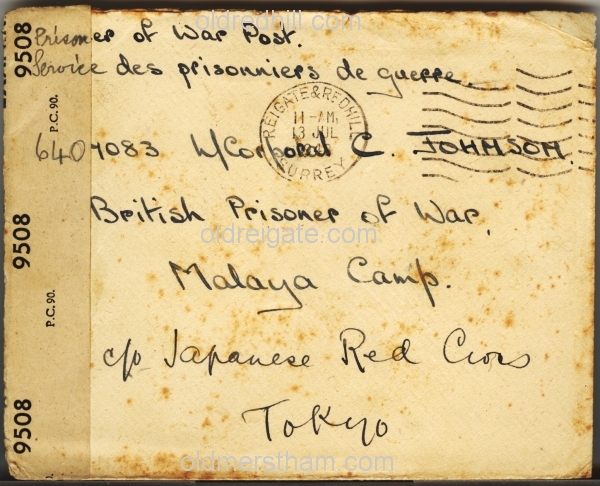 oldredhill.com
Prisoner of War Post.
Service des prisonniers de guerre.
REIGATE & REDHILL
11-AM
13 JUL
SURREY
6409083 L/Corporal C. JOHNSON
British Prisoner of War,
oldreigate.com
Malaya Camp.
c/o Japanese Red Cross
Tokyo
oldmerstham.com
9508
P.C. 90.
9508
P.C. 90.
9508